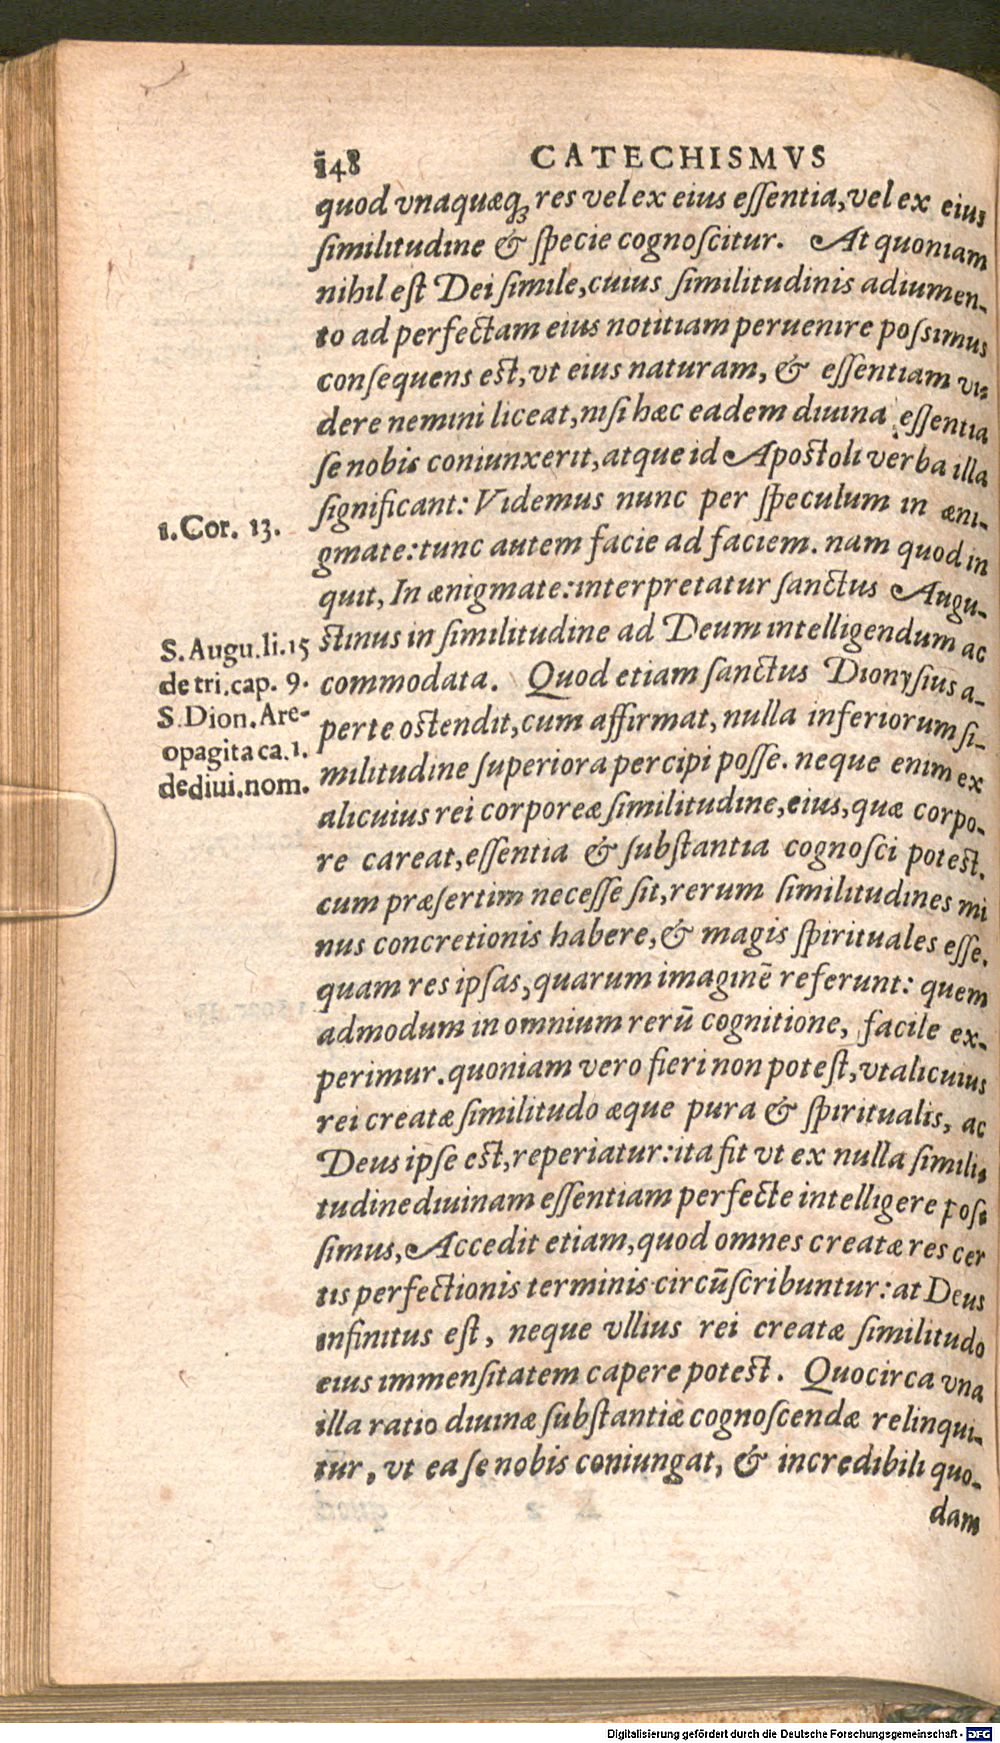 148 CATECHISMVS
quod vnaquæq; res vel ex eius eſſentia, vel ex eius
ſimilitudine & ſpecie cognoſcitur. At quoniam
nihil eſt Dei ſimile, cuius ſimilitudinis adiumen-
to ad perfectam eius notitiam peruenire poſsimus
conſequens eſt, vt eius naturam, & eſſentiam vi-
dere nemini liceat, niſi hæc eadem diuina eſſentia
ſe nobis coniunxerit, atque id Apoſtoli verba illa
ſignificant: Videmus nunc per ſpeculum in æni-
1. Cor. 13.
gmate: tunc autem facie ad faciem. nam quod in
quit, In ænigmate: interpretatur ſanctus Augu-
ſtinus in ſimilitudine ad Deum intelligendum ac
S. Augu. li. 15
commodata. Quod etiam ſanctus Dionyſius a-
de tri. cap. 9.
perte oſtendit, cum affirmat, nulla inferiorum ſi-
S. Dion. Are-
opagita ca. 1.
militudine ſuperiora percipi poſſe. neque enim ex
de diui. nom.
alicuius rei corporeæ ſimilitudine, eius, quæ corpo-
re careat, eſſentia & ſubſtantia cognoſci poteſt.
cum præſertim neceſſe ſit, rerum ſimilitudines mi
nus concretionis habere, & magis ſpirituales eſſe.
quam res ipſas, quarum imaginē referunt: quem
admodum in omnium rerū cognitione, facile ex-
perimur. quoniam vero fieri non poteſt, vt alicuius
rei creatæ ſimilitudo æque pura & ſpiritualis, ac
Deus ipſe eſt, reperiatur: ita fit vt ex nulla ſimili-
tudine diuinam eſſentiam perfecte intelligere poſ-
ſimus, Accedit etiam, quod omnes creatæ res cer
tis perfectionis terminis circūſcribuntur: at Deus
infinitus eſt, neque vllius rei creatæ ſimilitudo
eius immenſitatem capere poteſt. Quocirca vna
illa ratio diuinæ ſubſtantiæ cognoſcendæ relinqui-
tur, vt ea ſe nobis coniungat, & incredibili quo-
dam
Digitalisierung gefördert durch die Deutsche Forschungsgemeinschaft - DFG